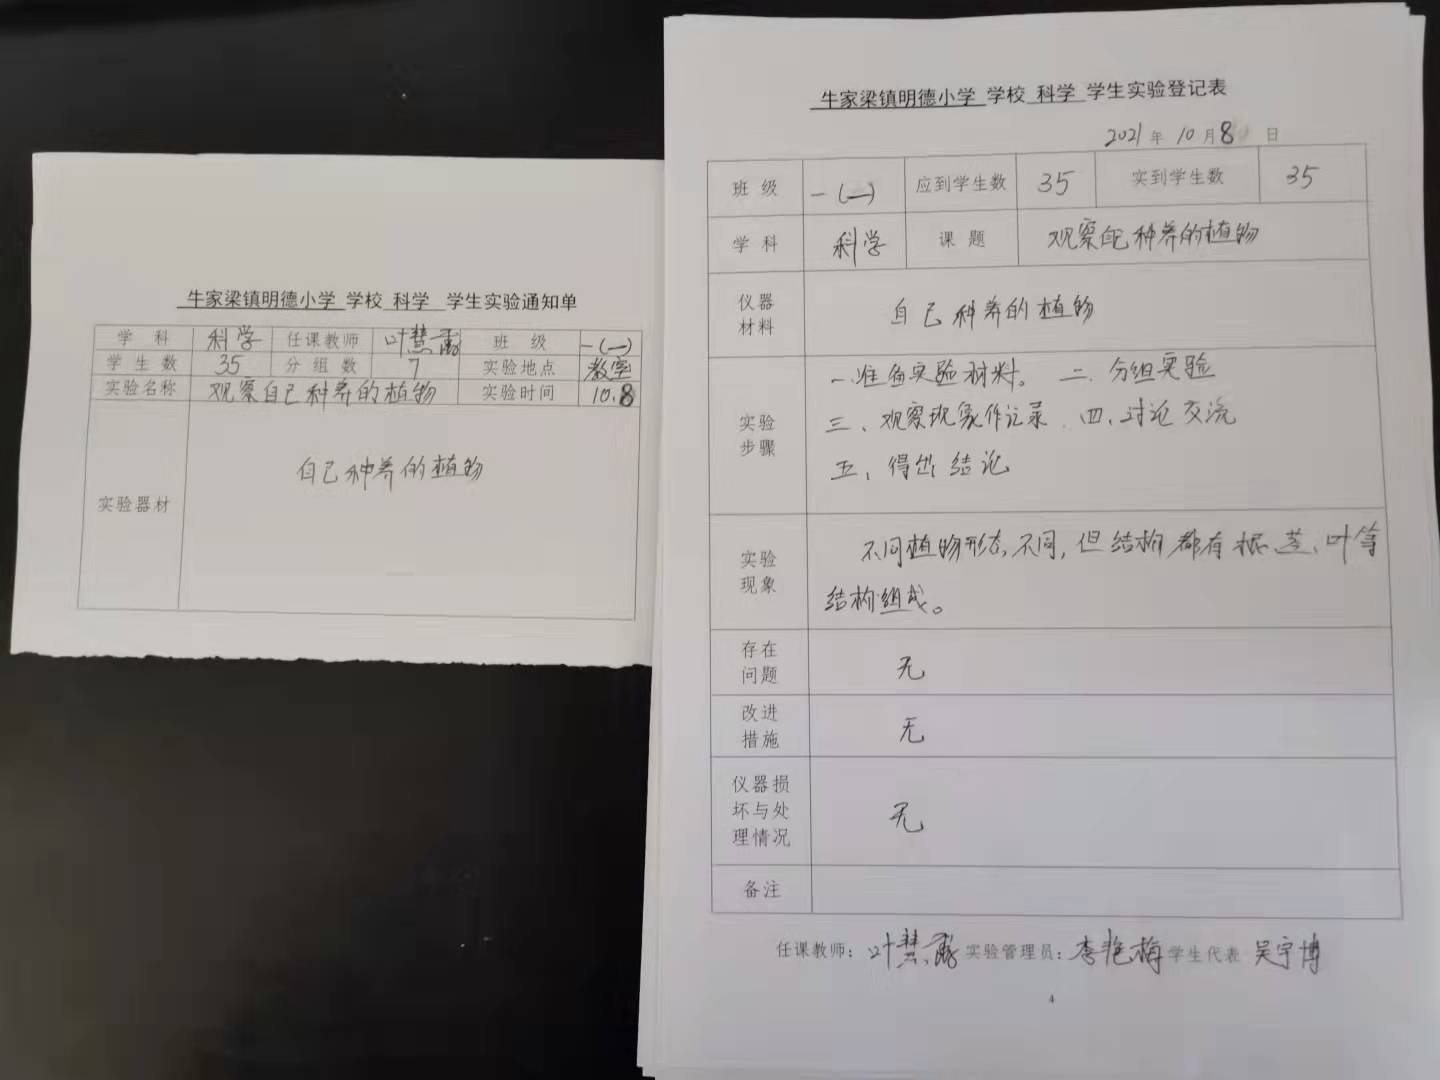 牛家梁镇明德小学 学校 科学 学生实验通知单
学 科 科学 任课教师 叶慧 班 级 一(一)
学 生 数 35 分 组 数 7 实验地点 教室
实验名称 观察自己种养的植物 实验时间 10.8
实验器材 自己种养的植物
牛家梁镇明德小学 学校 科学 学生实验登记表
2021 年 10 月 8 日
班 级 一(一) 应到学生数 35 实到学生数 35
学 科 科学 课 题 观察自己种养的植物
仪器
材料 自己种养的植物
实验
步骤
一、准备实验材料。 二、分组实验
三、观察现象作记录 四、讨论交流
五、得出结论
实验
现象
不同植物形态不同,但结构都有根、茎、叶等
结构组成。
存在
问题 无
改进
措施 无
仪器损
坏与处
理情况 无
备注
任课教师: 叶慧 实验管理员: 李艳梅 学生代表 吴宇博
4